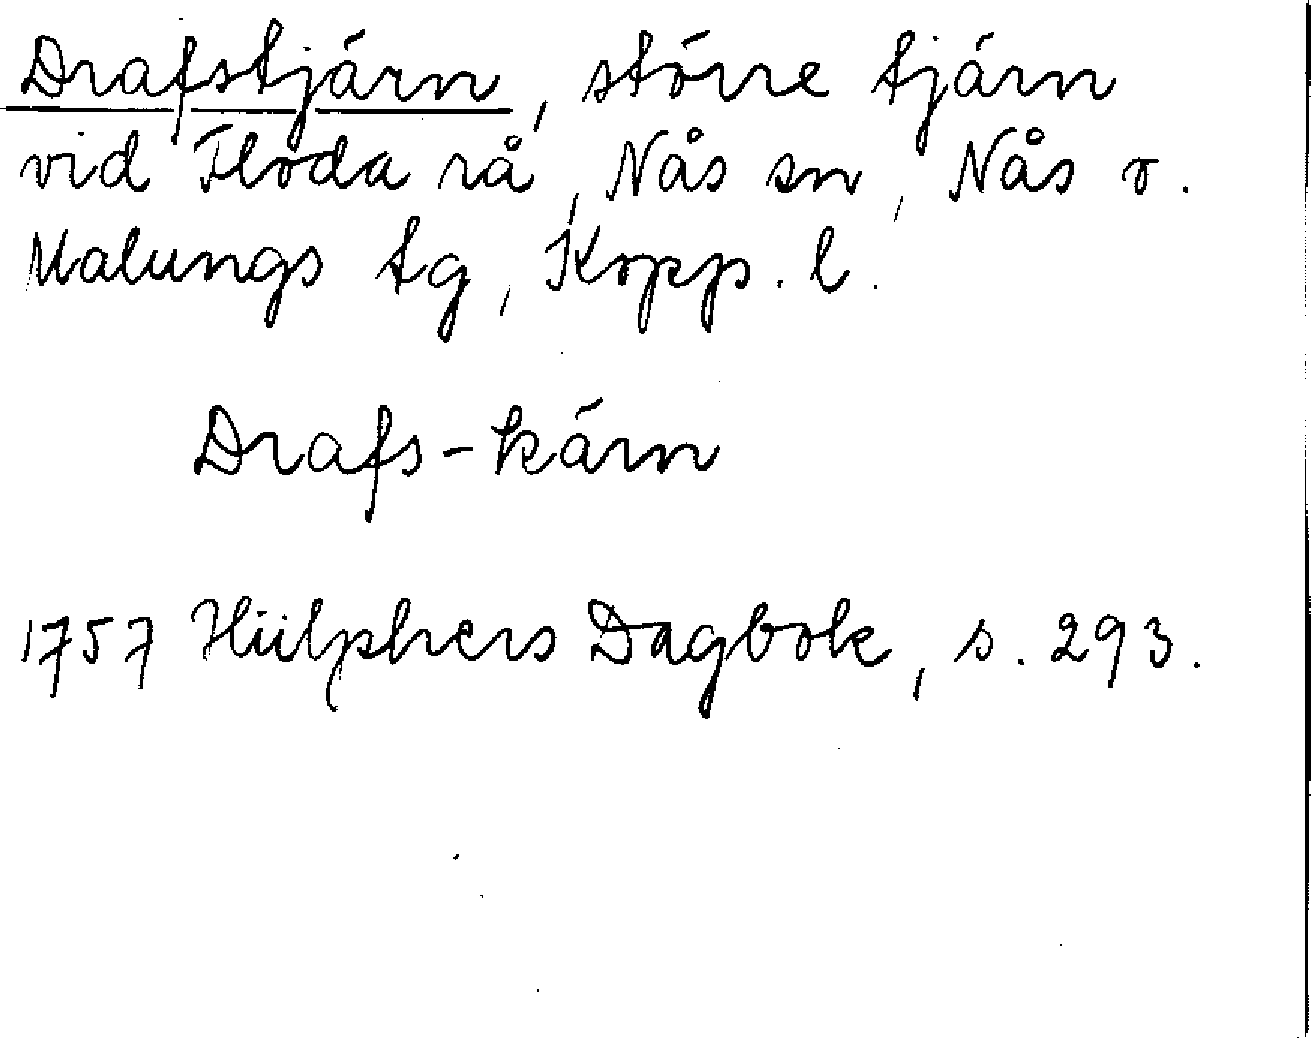 Drafstjärn, större tjärn
vid Floda rå, Nås sn, Nås o.
Malungs tg, Kopp. l.
Drafs-kärn
1757 Hülphers Dagbok, s. 293.